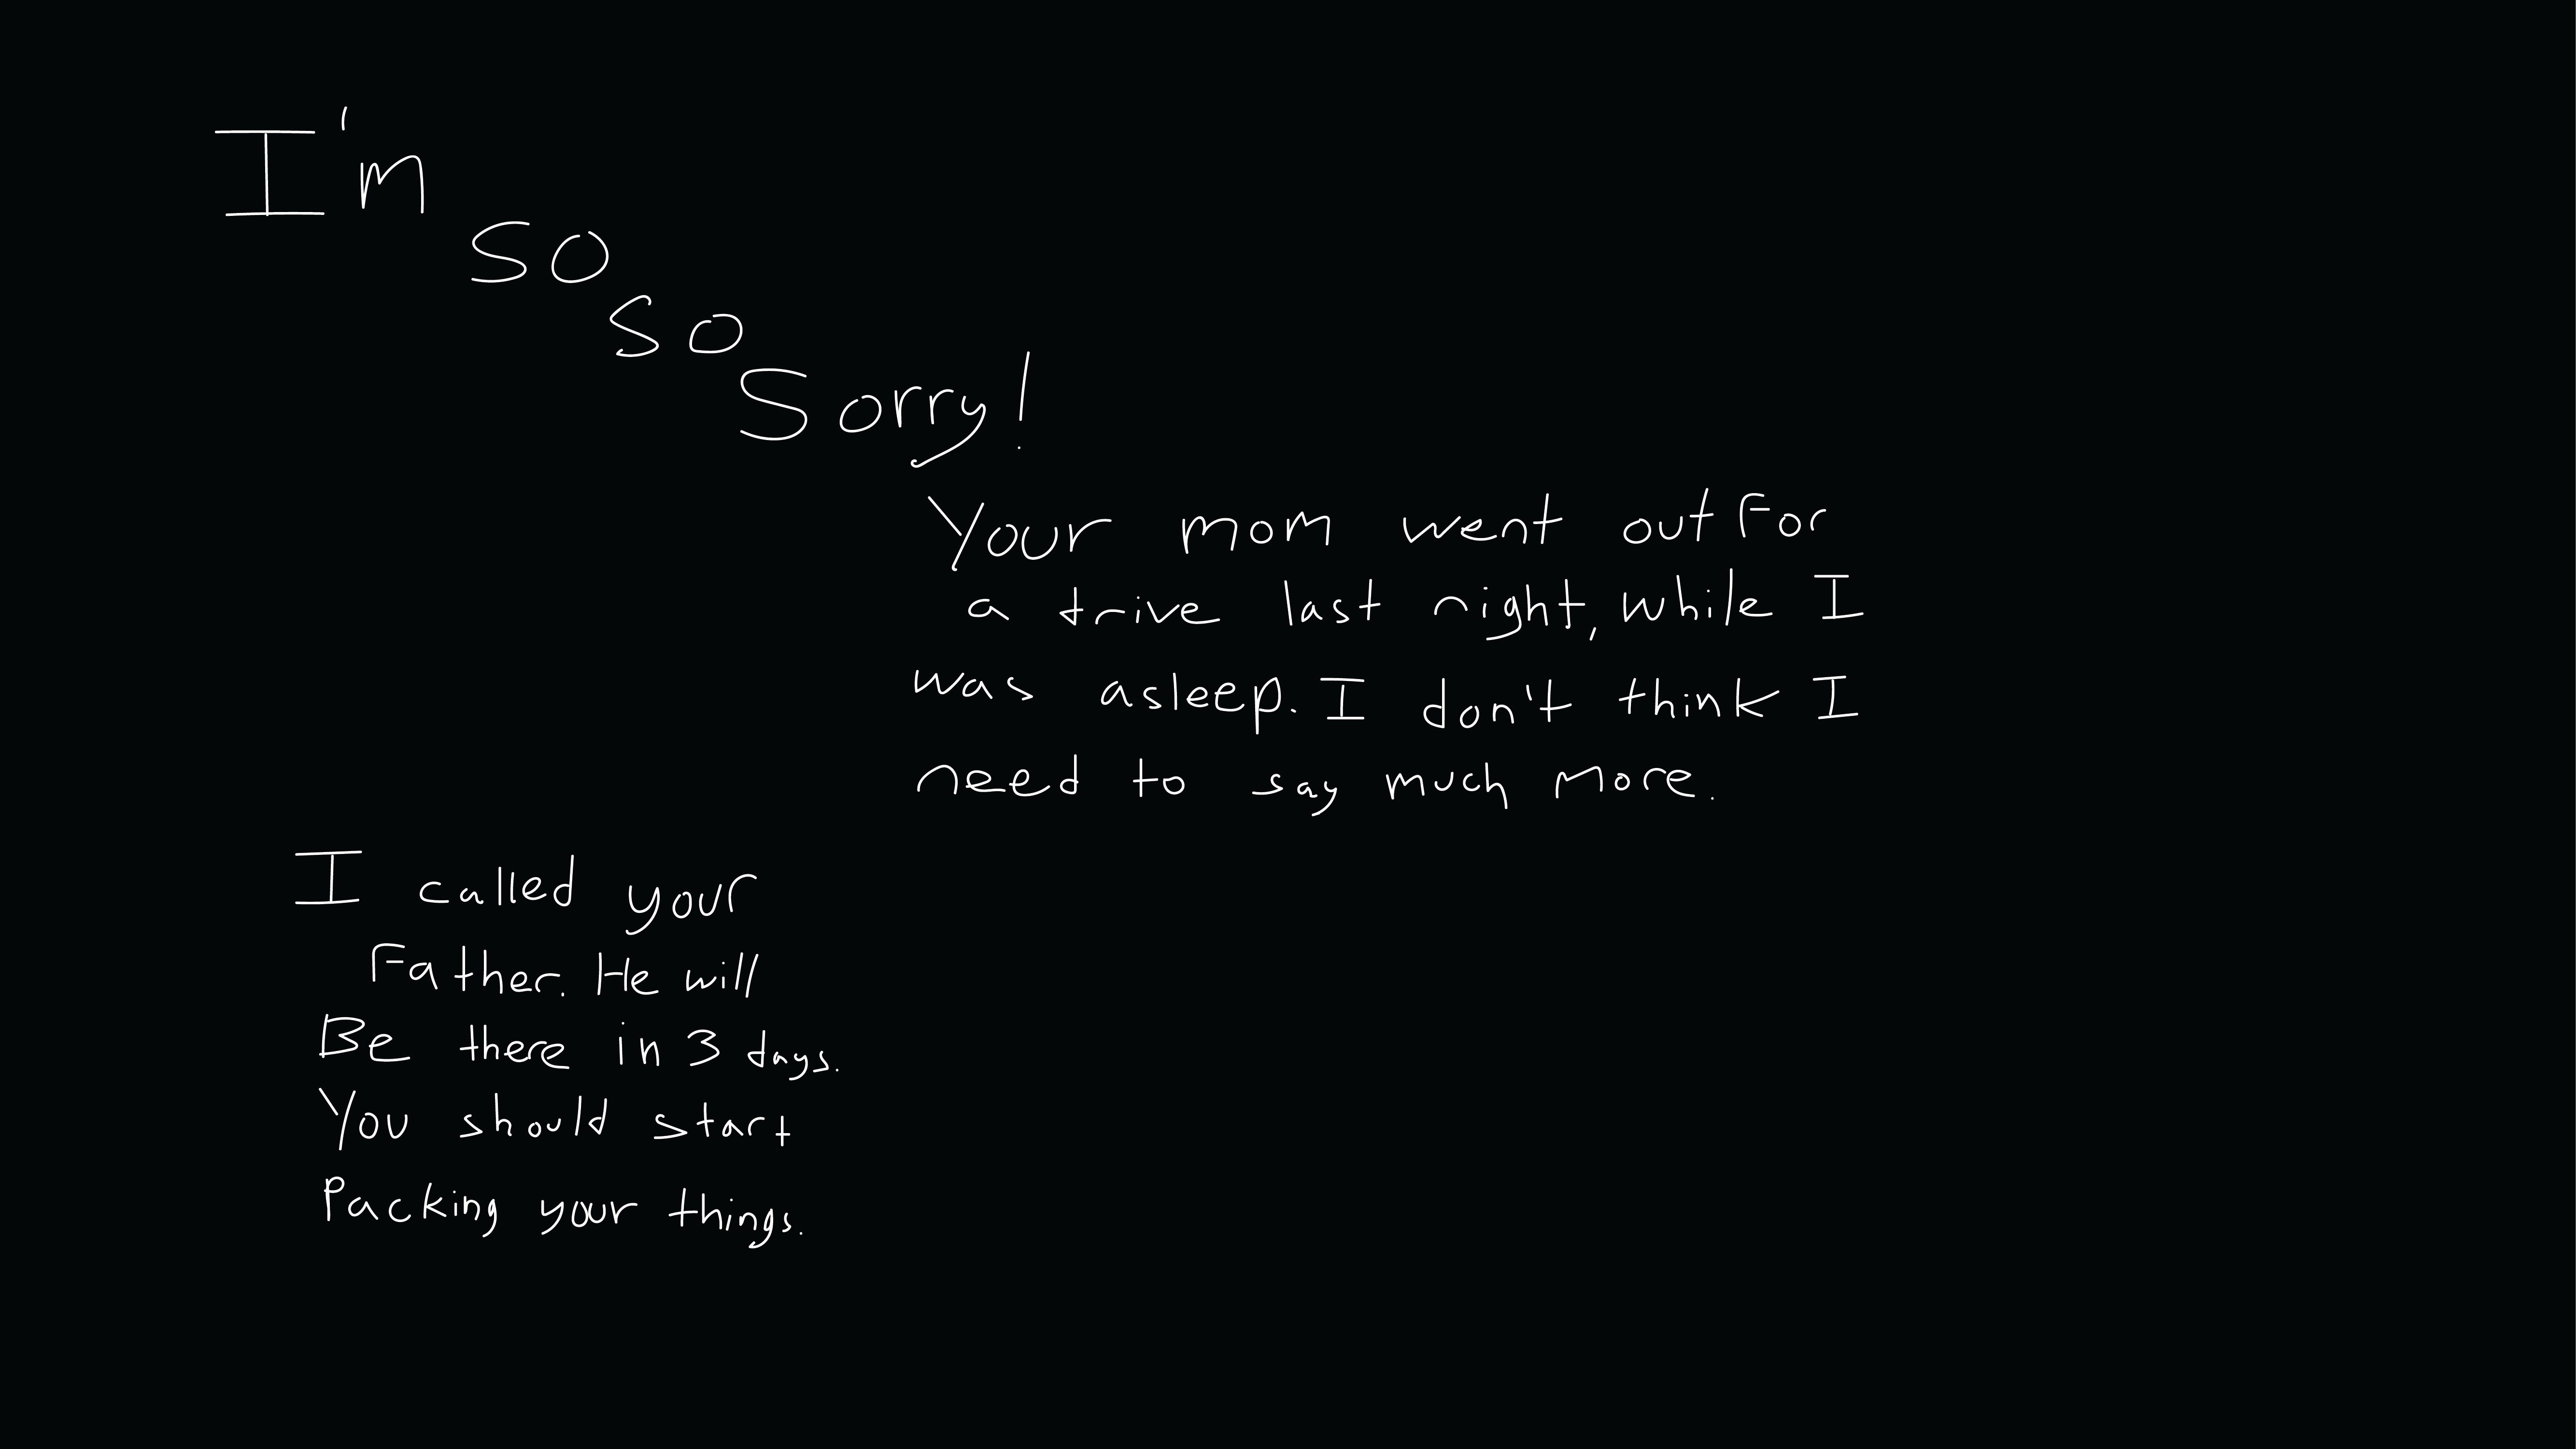 I'm
so
so
Sorry!
Your mom went out For
a trive last night, while I
was asleep. I don't think I
need to say much more.
I called your
Father. He will
Be there in 3 days.
You should start
Packing your things.